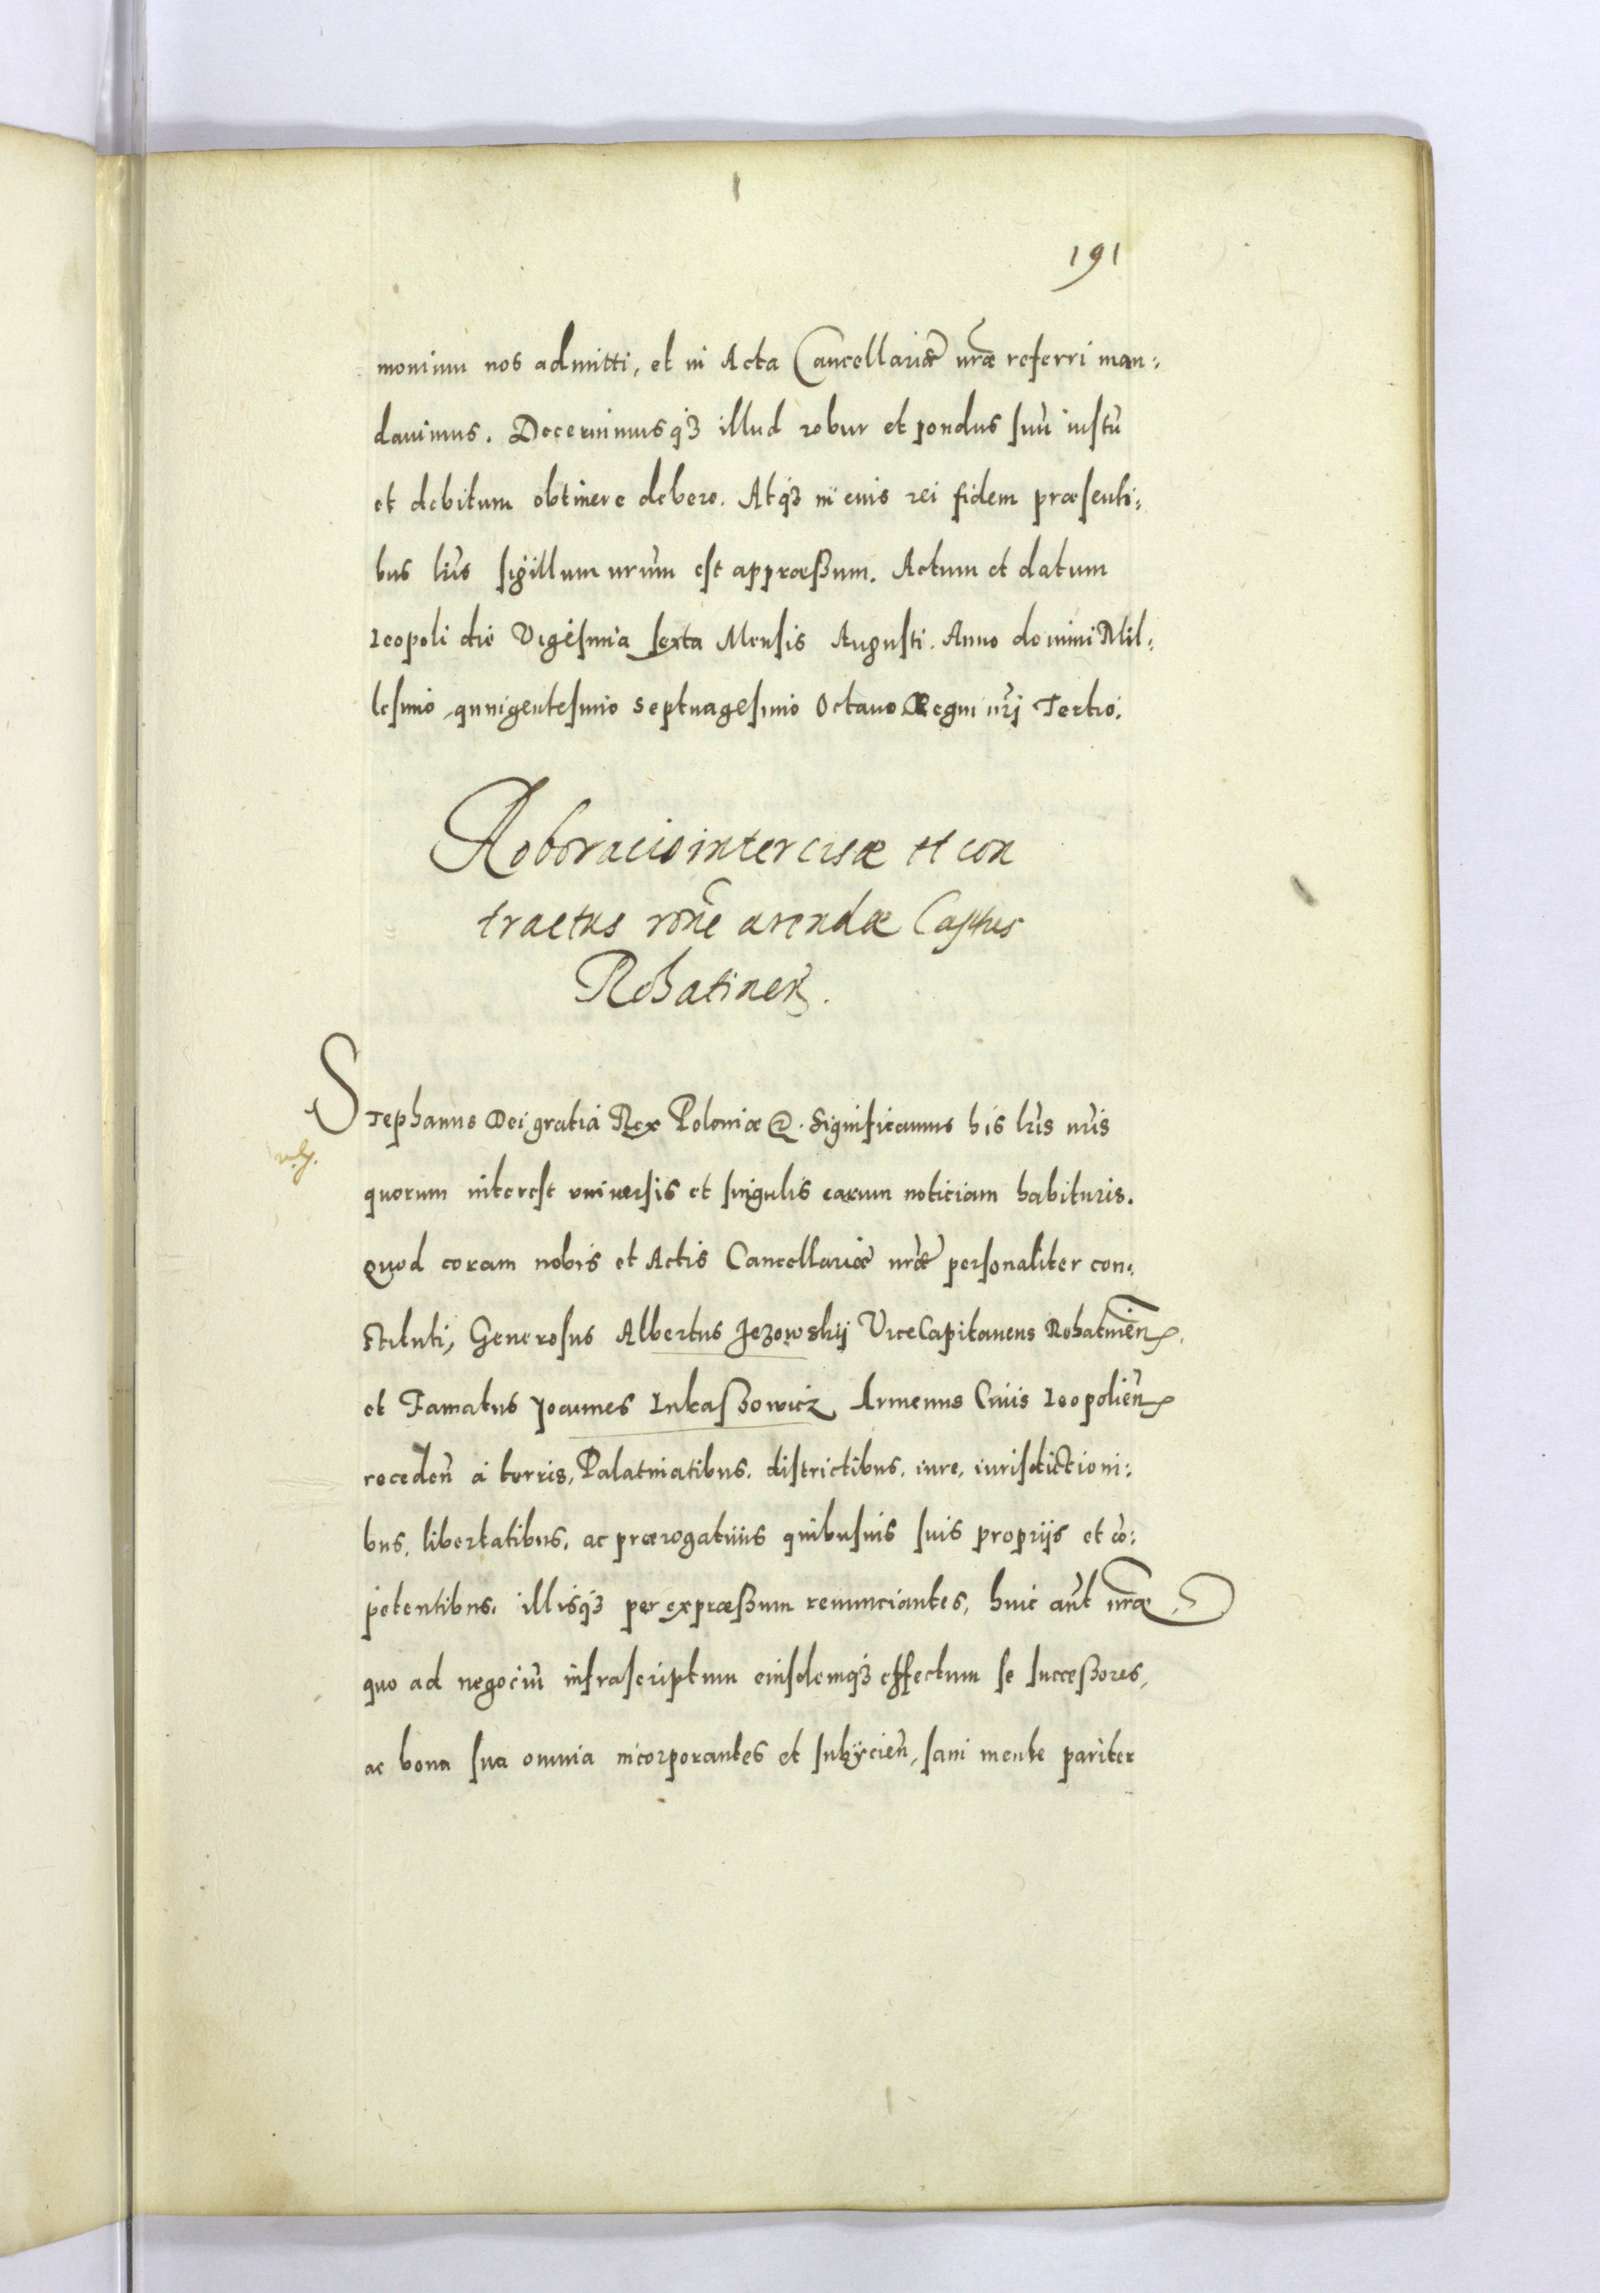 191
monium nos admitti, et in Acta Cancellariæ nr̃æ referri man:
dauimus. Decernimusq3 illud robur et pondus suũ iustũ
et debitum obtinere debere. Atq3 in cuius rei fidem præsenti:
bus lr̃is sigillum nr̃um est appræßum. Actum et datum
Leopoli die Vigesima sexta Mensis Augusti. Anno domini Mil:
lesimo quingentesimo septuagesimo Octauo Regni nr̃j Tertio.
Roboracio intercisæ et con
tractus rõne arendæ Castus
Rohatinen̄.
Stephanus Dei gratia Rex Poloniæ &. Significamus his lr̃is nr̃is
quorum interest vniuersis et singulis earum noticiam habituris.
Quod coram nobis et Actis Cancellariæ nr̃æ personaliter con:
stituti, Generosus Albertus Jezowskij ViceCapitaneus Rohatinen̄.
et Famatus Joannes Lukaßowicz Armenus Ciuis Leopolien̄
receden̄ a terris, Palatinatibus, districtibus, iure, iurisdictioni:
bus, libertatibus, ac prærogatiuis quibusuis suis proprijs et cõ:
petentibus, illisq3 per expræßum renunciantes, huic aũt nr̃æ
quo ad negociũ infrascriptum eiusdemq3 effectum se succeßores,
ac bona sua omnia incorporantes et subijcien̄, sani mente pariter